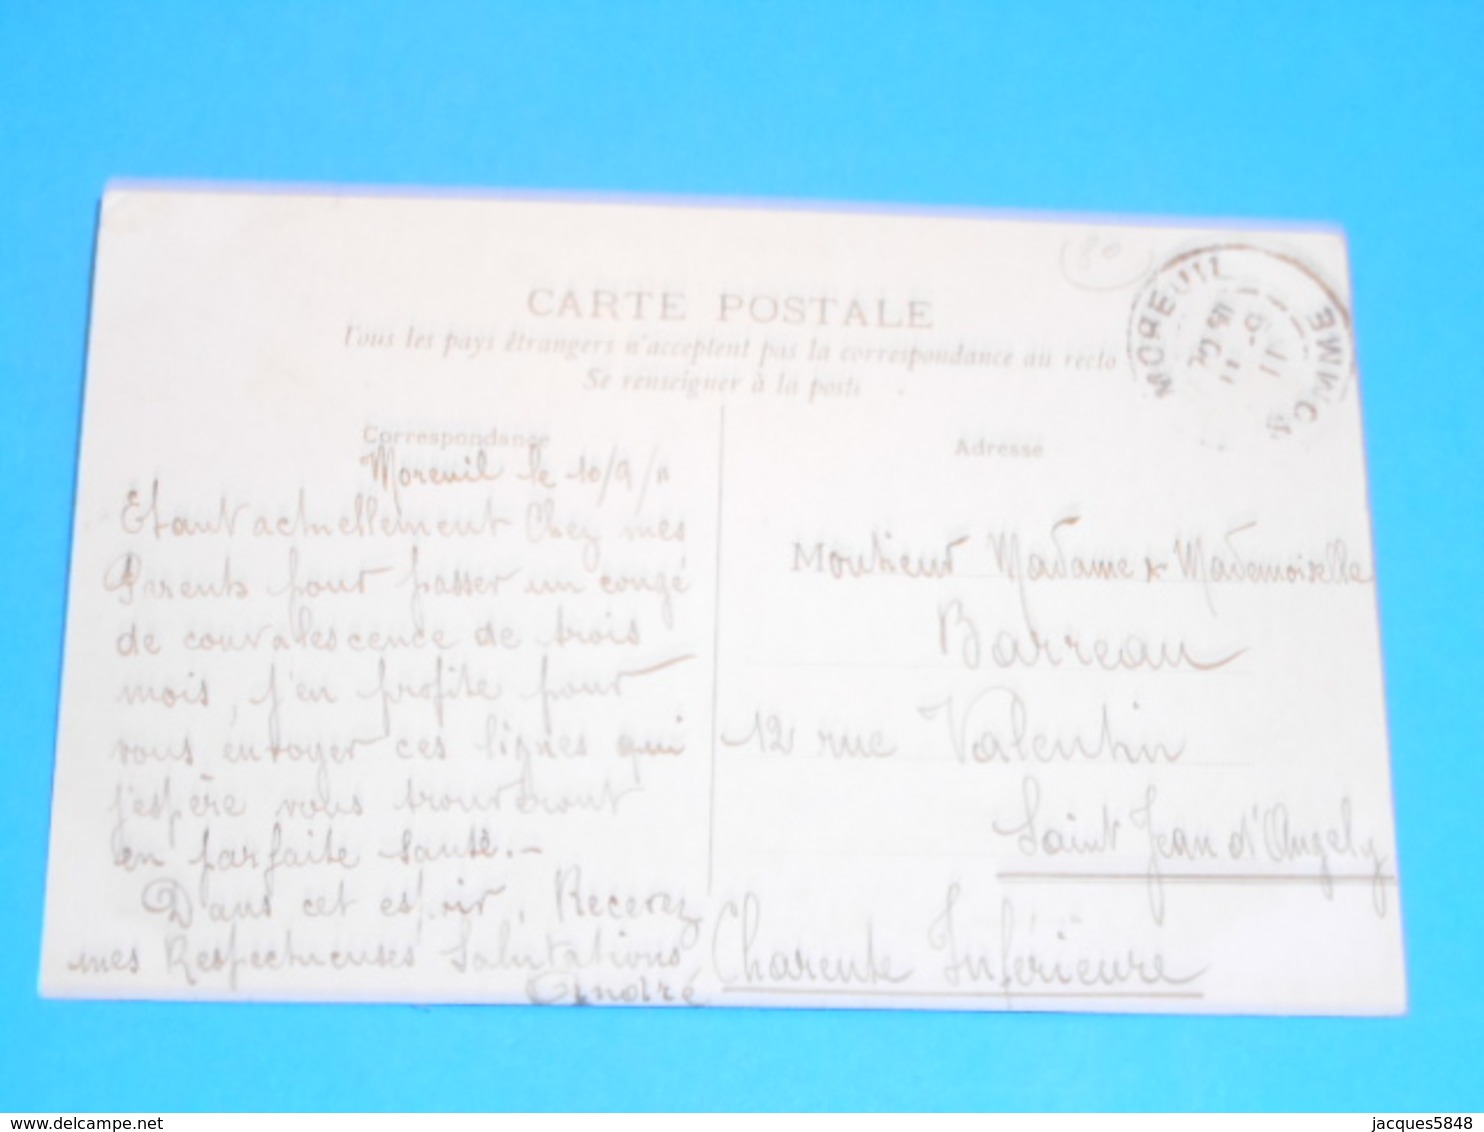 80
CARTE POSTALE
Tous les pays étrangers n'acceptent pas la correspondance au recto
Se renseigner à la poste
MOREUIL
SOMME
Correspondance
Moreuil le 10/9/11
Etant actuellement Chez mes
Parents pour passer un congé
de convalescence de trois
mois, j'en profite pour
vous envoyer ces lignes qui
j'espère vous trouveront
en parfaite santé.-
Dans cet espoir, Recevez
mes Respectueuses Salutations
André
Adresse
Monsieur Madame & Mademoiselle
Barreau
12 rue Valentin
Saint Jean d'Angely
Charente Inférieure
delcampe.net
jacques5848